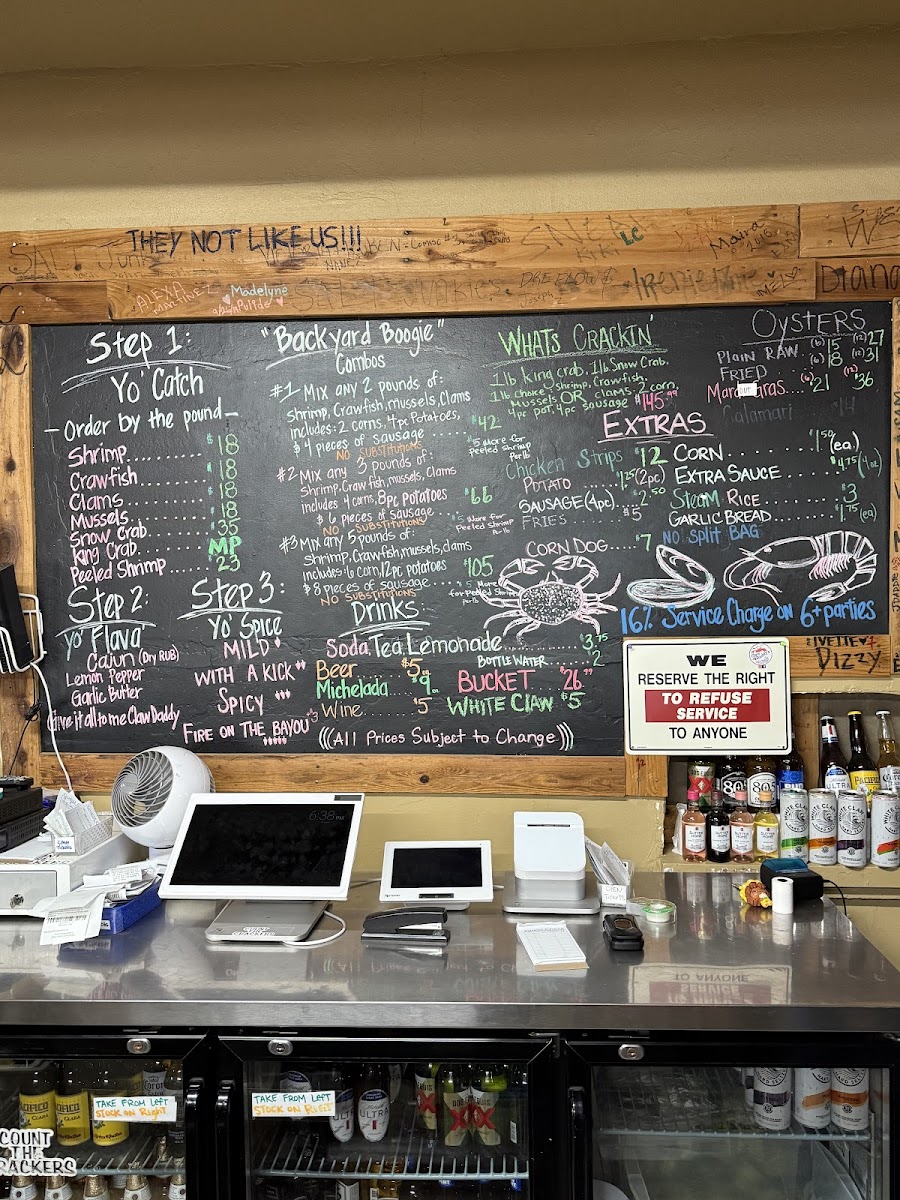 THEY NOT LIKE US!!!
LC
ALEXA
Madelyne
Diana
Step 1:
Yo' Catch
- Order by the pound -
Shrimp........ $18
Crawfish........ $18
Clams........ $18
Mussels........ $18
Snow Crab........ 35
King Crab........ MP
Peeled Shrimp.... 23
Step 2:
Yo' Flava'
Cajun (Dry RUB)
Lemon Pepper
Garlic Butter
Give it all to me Claw Daddy
Step 3:
Yo' Spice
MILD
WITH A KICK
SPICY
FIRE ON THE BAYOU
"Backyard Boogie"
Combos
#1 Mix any 2 pounds of:
Shrimp, Crawfish, mussels, Clams
includes: 2 corns, 4pc Potatoes,
$ 4 pieces of sausage........ $42
NO SUBSTITUTIONS
$5 more for peeled shrimp per lb
#2 Mix any 3 pounds of:
Shrimp, Crawfish, mussels, Clams
includes 4 corns, 8pc potatoes
$ 6 pieces of sausage........ $66
NO SUBSTITUTIONS
$5 More for Peeled Shrimp Per lb
#3 Mix any 5 pounds of:
Shrimp, Crawfish, mussels, clams
includes: 6 corn, 12pc potatoes
$ 8 pieces of sausage........ $105
NO SUBSTITUTIONS
$5 More for Peeled Shrimp per lb
Drinks:
Soda Tea Lemonade........ $3.75
BOTTLE WATER........ 2
Beer........ $5
Michelada.... 9
Wine........ $5
BUCKET $26
WHITE CLAW $5
((All Prices Subject to Change))
WHATS CRACKIN'
1lb king crab. 1lb Snow Crab.
1lb Choice: Shrimp, Crawfish,
Mussels OR clams 2 corn,
4pc pot, 4pc sausage $145.99
OYSTERS
PLAIN RAW (6) 15 (12) 27
FRIED (6) 18 (12) 31
Mardi Gras.... (6) 21 (12) 36
OUT
Calamari 14
EXTRAS
Chicken Strips $12
POTATO........ 1.25 (2pc)
SAUSAGE (4pc) $2.50
FRIES........ $5
CORN DOG........ $7
CORN........ $1.50 (ea)
EXTRA SAUCE........ $4.75 (4oz)
Steam RICE........ $3
GARLIC BREAD........ $1.75 (ea)
NO SPLIT BAG
16% Service Charge on 6+ parties
IVETTE
Dizzy
WE
RESERVE THE RIGHT
TO REFUSE
SERVICE
TO ANYONE
6:38 PM
TAKE FROM LEFT
STOCK ON Right
TAKE FROM LEFT
STOCK ON Right
COUNT
THE
CRACKERS
PACIFICO
ULTRA
WHITE CLAW